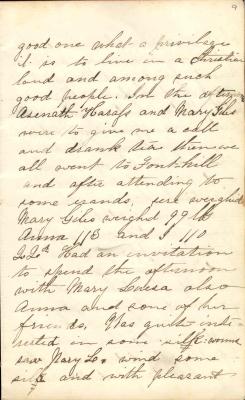 9
good one what a privilege
it is to live in a Christian
land and among such
good people. In the afternoon
Asenath and Mary Giles
were to give me a call
and drank tea then we
all went to Fonthill
and after attending to
some erands, were weighed
Mary Giles weighed 99 lb
Anna 113 and I 110
22d Had an invitation
to spend the afternoon
with Mary Louisa also
Anna and some of her
friends. Was quite inte
rested in some silk worms
saw Mary L. wind some
silk and with pleasant